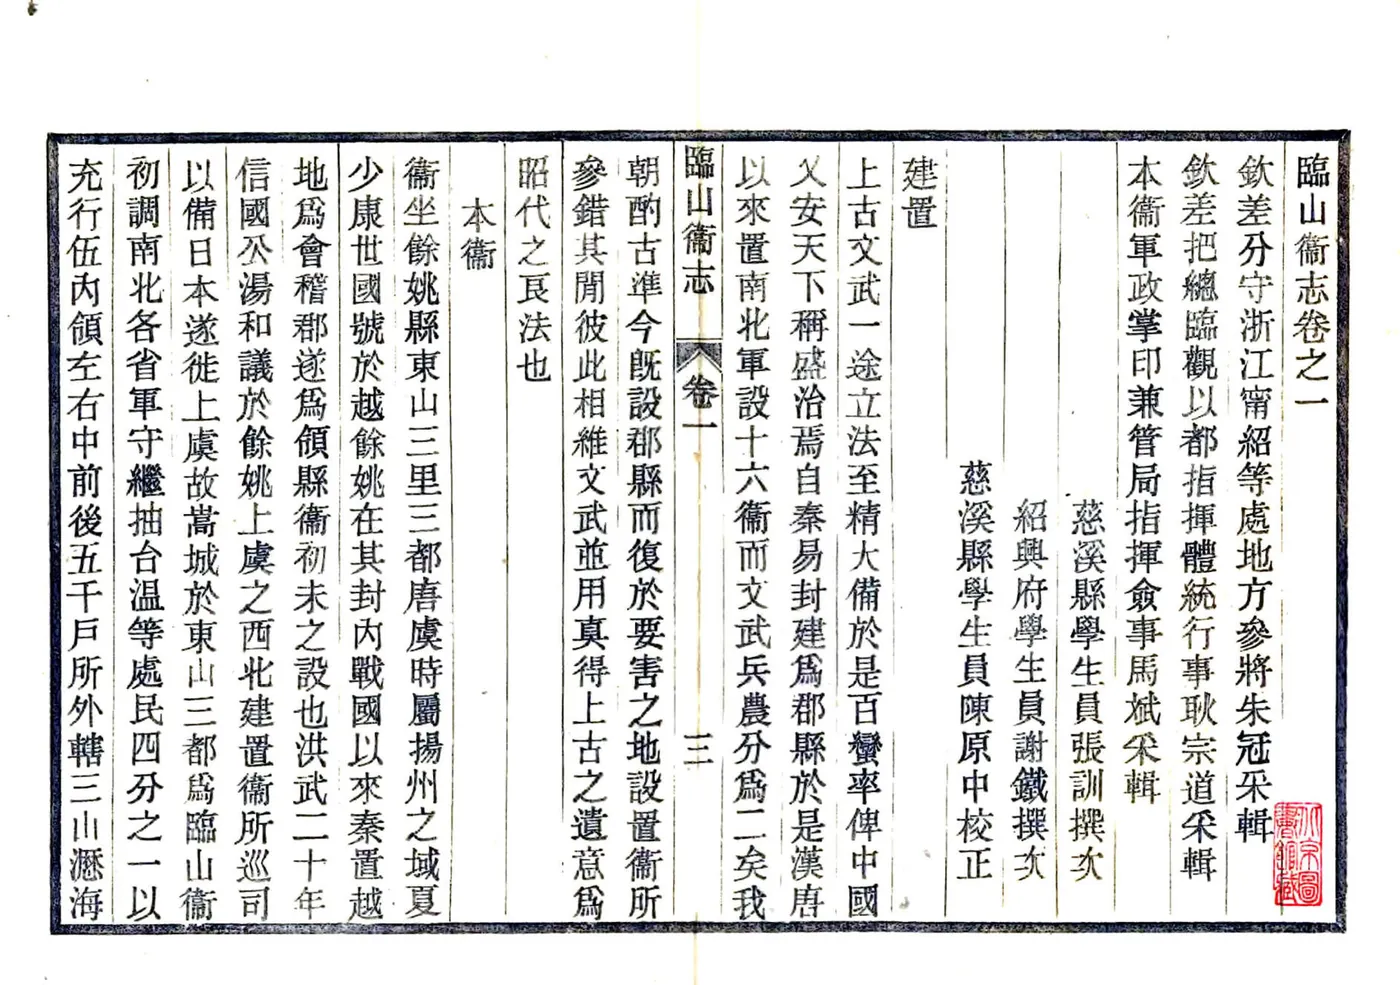 臨山衞志卷之一
欽差分守浙江甯紹等處地方參將朱冠采輯
欽差把總臨觀以都指揮體統行事耿宗道采輯
本衞軍政掌印兼管局指揮僉事馬斌采輯
慈溪縣學生員張訓撰次
紹興府學生員謝鐵撰次
慈溪縣學生員陳原中校正
建置
上古文武一途立法至精大備於是百蠻率俾中國
乂安天下稱盛治焉自秦易封建爲郡縣於是漢唐
以來置南北軍設十六衞而文武兵農分爲二矣我
臨山衞志 卷一 三
朝酌古準今旣設郡縣而復於要害之地設置衞所
參錯其閒彼此相維文武並用真得上古之遺意爲
昭代之良法也
本衞
衞坐餘姚縣東山三里三都唐虞時屬揚州之域夏
少康世國號於越餘姚在其封內戰國以來秦置越
地爲會稽郡遂爲領縣衞初未之設也洪武二十年
信國公湯和議於餘姚上虞之西北建置衞所巡司
以備日本遂徙上虞故嵩城於東山三都爲臨山衞
初調南北各省軍守繼抽台温等處民四分之一以
充行伍內領左右中前後五千戶所外轄三山瀝海